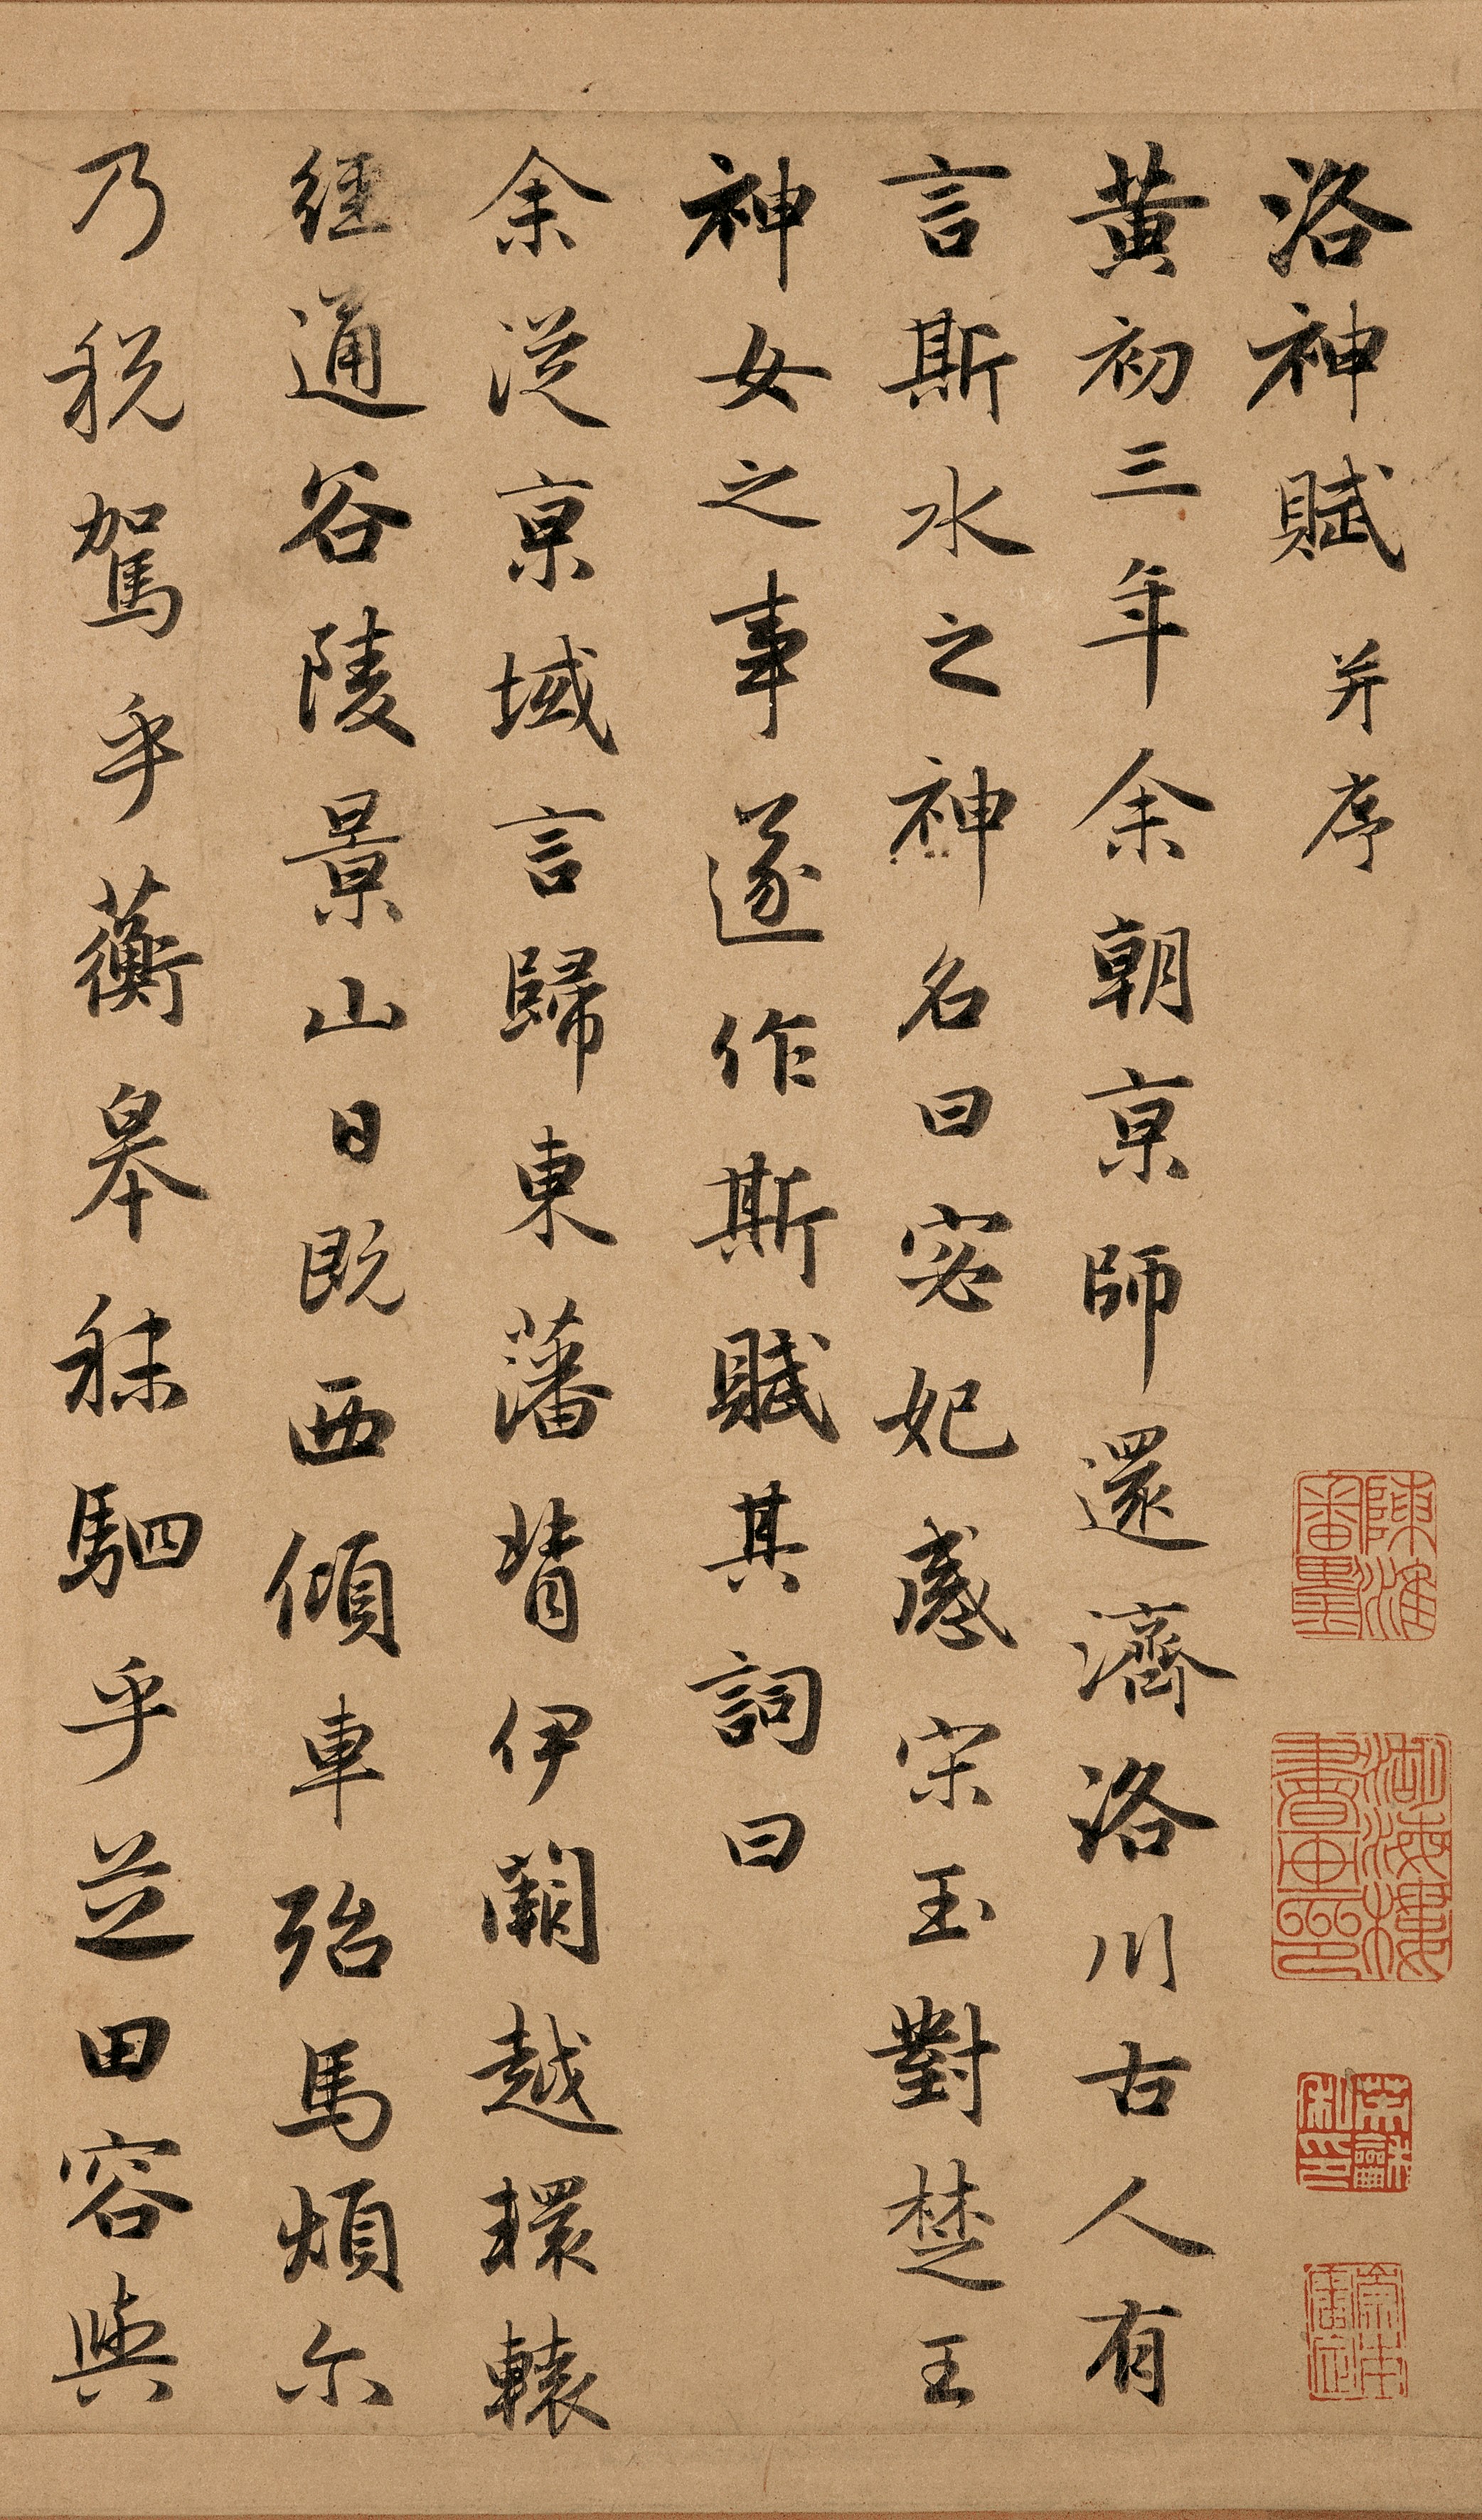 洛神賦 并序
黄初三年余朝京師還濟洛川古人有
言斯水之神名曰宓妃感宋玉對楚王
神女之事遂作斯賦其詞曰
余従京域言歸東藩背伊闕越轘轅
經通谷陵景山日既西傾車殆馬煩尓
乃税駕乎蘅皋秣駟乎芝田容與
陳淮
審墨